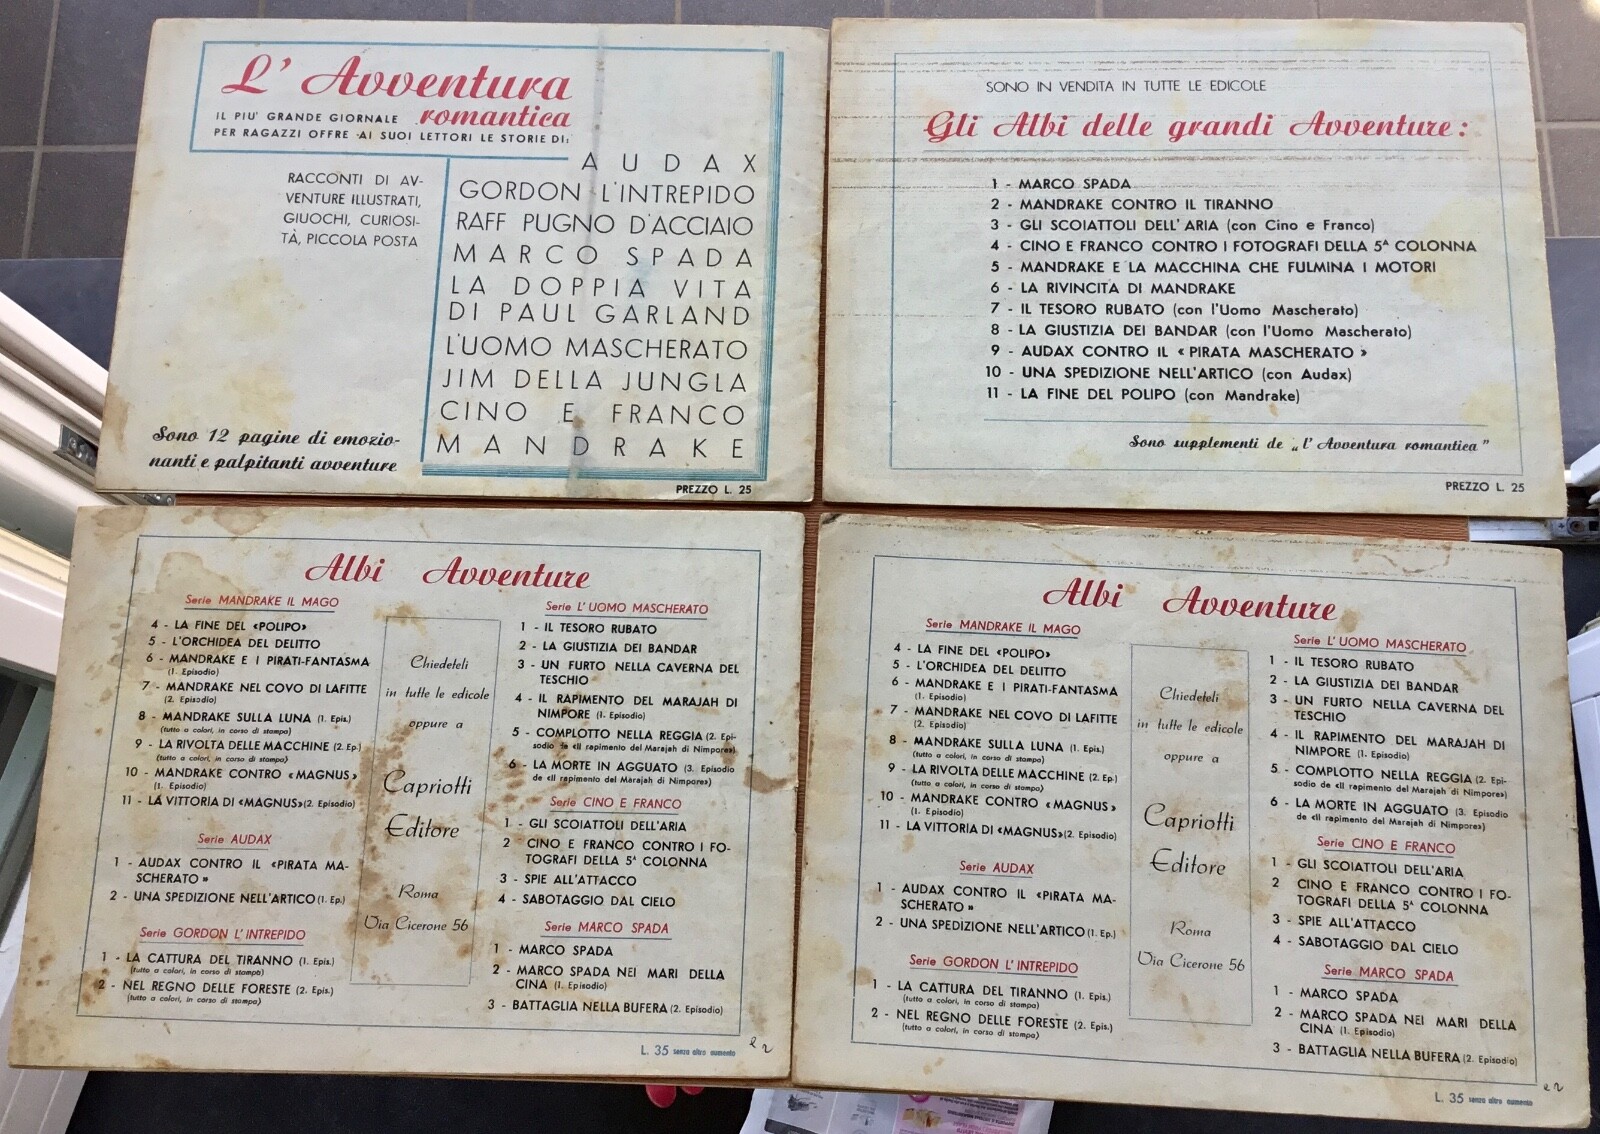 L' Avventura
romantica
IL PIU' GRANDE GIORNALE
PER RAGAZZI OFFRE AI SUOI LETTORI LE STORIE DI:
RACCONTI DI AV-
VENTURE ILLUSTRATI,
GIUOCHI, CURIOSI-
TÀ, PICCOLA POSTA
AUDAX
GORDON L'INTREPIDO
RAFF PUGNO D'ACCIAIO
MARCO SPADA
LA DOPPIA VITA
DI PAUL GARLAND
L'UOMO MASCHERATO
JIM DELLA JUNGLA
CINO E FRANCO
MANDRAKE
Sono 12 pagine di emozio-
nanti e palpitanti avventure
PREZZO L. 25
SONO IN VENDITA IN TUTTE LE EDICOLE
Gli Albi delle grandi Avventure:
1 - MARCO SPADA
2 - MANDRAKE CONTRO IL TIRANNO
3 - GLI SCOIATTOLI DELL' ARIA (con Cino e Franco)
4 - CINO E FRANCO CONTRO I FOTOGRAFI DELLA 5ᴬ COLONNA
5 - MANDRAKE E LA MACCHINA CHE FULMINA I MOTORI
6 - LA RIVINCITA DI MANDRAKE
7 - IL TESORO RUBATO (con l'Uomo Mascherato)
8 - LA GIUSTIZIA DEI BANDAR (con l'Uomo Mascherato)
9 - AUDAX CONTRO IL « PIRATA MASCHERATO »
10 - UNA SPEDIZIONE NELL'ARTICO (con Audax)
11 - LA FINE DEL POLIPO (con Mandrake)
Sono supplementi de „ l'Avventura romantica"
PREZZO L. 25
Albi Avventure
Serie MANDRAKE IL MAGO
4 - LA FINE DEL «POLIPO»
5 - L'ORCHIDEA DEL DELITTO
6 - MANDRAKE E I PIRATI-FANTASMA
(1. Episodio)
7 - MANDRAKE NEL COVO DI LAFITTE
(2. Episodio)
8 - MANDRAKE SULLA LUNA (1. Epis.)
(tutto a colori, in corso di stampa)
9 - LA RIVOLTA DELLE MACCHINE (2. Ep.)
(tutto a colori, in corso di stampa)
10 - MANDRAKE CONTRO «MAGNUS»
(1. Episodio)
11 - LA VITTORIA DI «MAGNUS» (2. Episodio)
Serie AUDAX
1 - AUDAX CONTRO IL «PIRATA MA-
SCHERATO»
2 - UNA SPEDIZIONE NELL'ARTICO (1. Ep.)
Serie GORDON L'INTREPIDO
1 - LA CATTURA DEL TIRANNO (1. Epis.)
(tutto a colori, in corso di stampa)
2 - NEL REGNO DELLE FORESTE (2. Epis.)
(tutto a colori, in corso di stampa)
Chiedeteli
in tutte le edicole
oppure a
Capriotti
Editore
Roma
Via Cicerone 56
Serie L'UOMO MASCHERATO
1 - IL TESORO RUBATO
2 - LA GIUSTIZIA DEI BANDAR
3 - UN FURTO NELLA CAVERNA DEL
TESCHIO
4 - IL RAPIMENTO DEL MARAJAH DI
NIMPORE (1. Episodio)
5 - COMPLOTTO NELLA REGGIA (2. Epi-
sodio de «Il rapimento del Marajah di Nimpore»)
6 - LA MORTE IN AGGUATO (3. Episodio
de «Il rapimento del Marajah di Nimpore»)
Serie CINO E FRANCO
1 - GLI SCOIATTOLI DELL'ARIA
2 CINO E FRANCO CONTRO I FO-
TOGRAFI DELLA 5ᴬ COLONNA
3 - SPIE ALL'ATTACCO
4 - SABOTAGGIO DAL CIELO
Serie MARCO SPADA
1 - MARCO SPADA
2 - MARCO SPADA NEI MARI DELLA
CINA (1. Episodio)
3 - BATTAGLIA NELLA BUFERA (2. Episodio)
L. 35 senza altro aumento
e 2
Albi Avventure
Serie MANDRAKE IL MAGO
4 - LA FINE DEL «POLIPO»
5 - L'ORCHIDEA DEL DELITTO
6 - MANDRAKE E I PIRATI-FANTASMA
(1. Episodio)
7 - MANDRAKE NEL COVO DI LAFITTE
(2. Episodio)
8 - MANDRAKE SULLA LUNA (1. Epis.)
(tutto a colori, in corso di stampa)
9 - LA RIVOLTA DELLE MACCHINE (2. Ep.)
(tutto a colori, in corso di stampa)
10 - MANDRAKE CONTRO «MAGNUS»
(1. Episodio)
11 - LA VITTORIA DI «MAGNUS» (2. Episodio)
Serie AUDAX
1 - AUDAX CONTRO IL «PIRATA MA-
SCHERATO»
2 - UNA SPEDIZIONE NELL'ARTICO (1. Ep.)
Serie GORDON L'INTREPIDO
1 - LA CATTURA DEL TIRANNO (1. Epis.)
(tutto a colori, in corso di stampa)
2 - NEL REGNO DELLE FORESTE (2. Epis.)
(tutto a colori, in corso di stampa)
Chiedeteli
in tutte le edicole
oppure a
Capriotti
Editore
Roma
Via Cicerone 56
Serie L'UOMO MASCHERATO
1 - IL TESORO RUBATO
2 - LA GIUSTIZIA DEI BANDAR
3 - UN FURTO NELLA CAVERNA DEL
TESCHIO
4 - IL RAPIMENTO DEL MARAJAH DI
NIMPORE (1. Episodio)
5 - COMPLOTTO NELLA REGGIA (2. Epi-
sodio de «Il rapimento del Marajah di Nimpore»)
6 - LA MORTE IN AGGUATO (3. Episodio
de «Il rapimento del Marajah di Nimpore»)
Serie CINO E FRANCO
1 - GLI SCOIATTOLI DELL'ARIA
2 CINO E FRANCO CONTRO I FO-
TOGRAFI DELLA 5ᴬ COLONNA
3 - SPIE ALL'ATTACCO
4 - SABOTAGGIO DAL CIELO
Serie MARCO SPADA
1 - MARCO SPADA
2 - MARCO SPADA NEI MARI DELLA
CINA (1. Episodio)
3 - BATTAGLIA NELLA BUFERA (2. Episodio)
L. 35 senza altro aumento
e 2